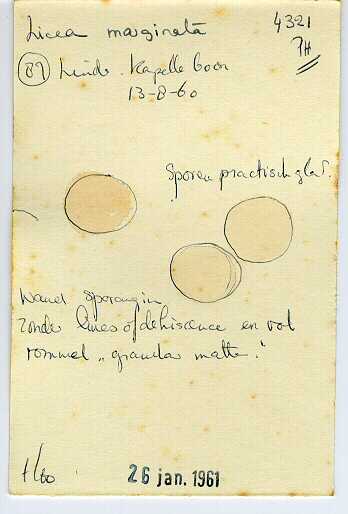 Licea marginata
4321
PH
89 Linde Kapelleboom
13-8-60
Sporen practisch glad.
Wand sporangia
zonder lines of dehiscence en vol
rommel „granular matter"
26 jan. 1961